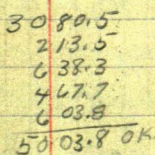 3080.5
213.5
638.3
467.7
603.8
5003.8 OK